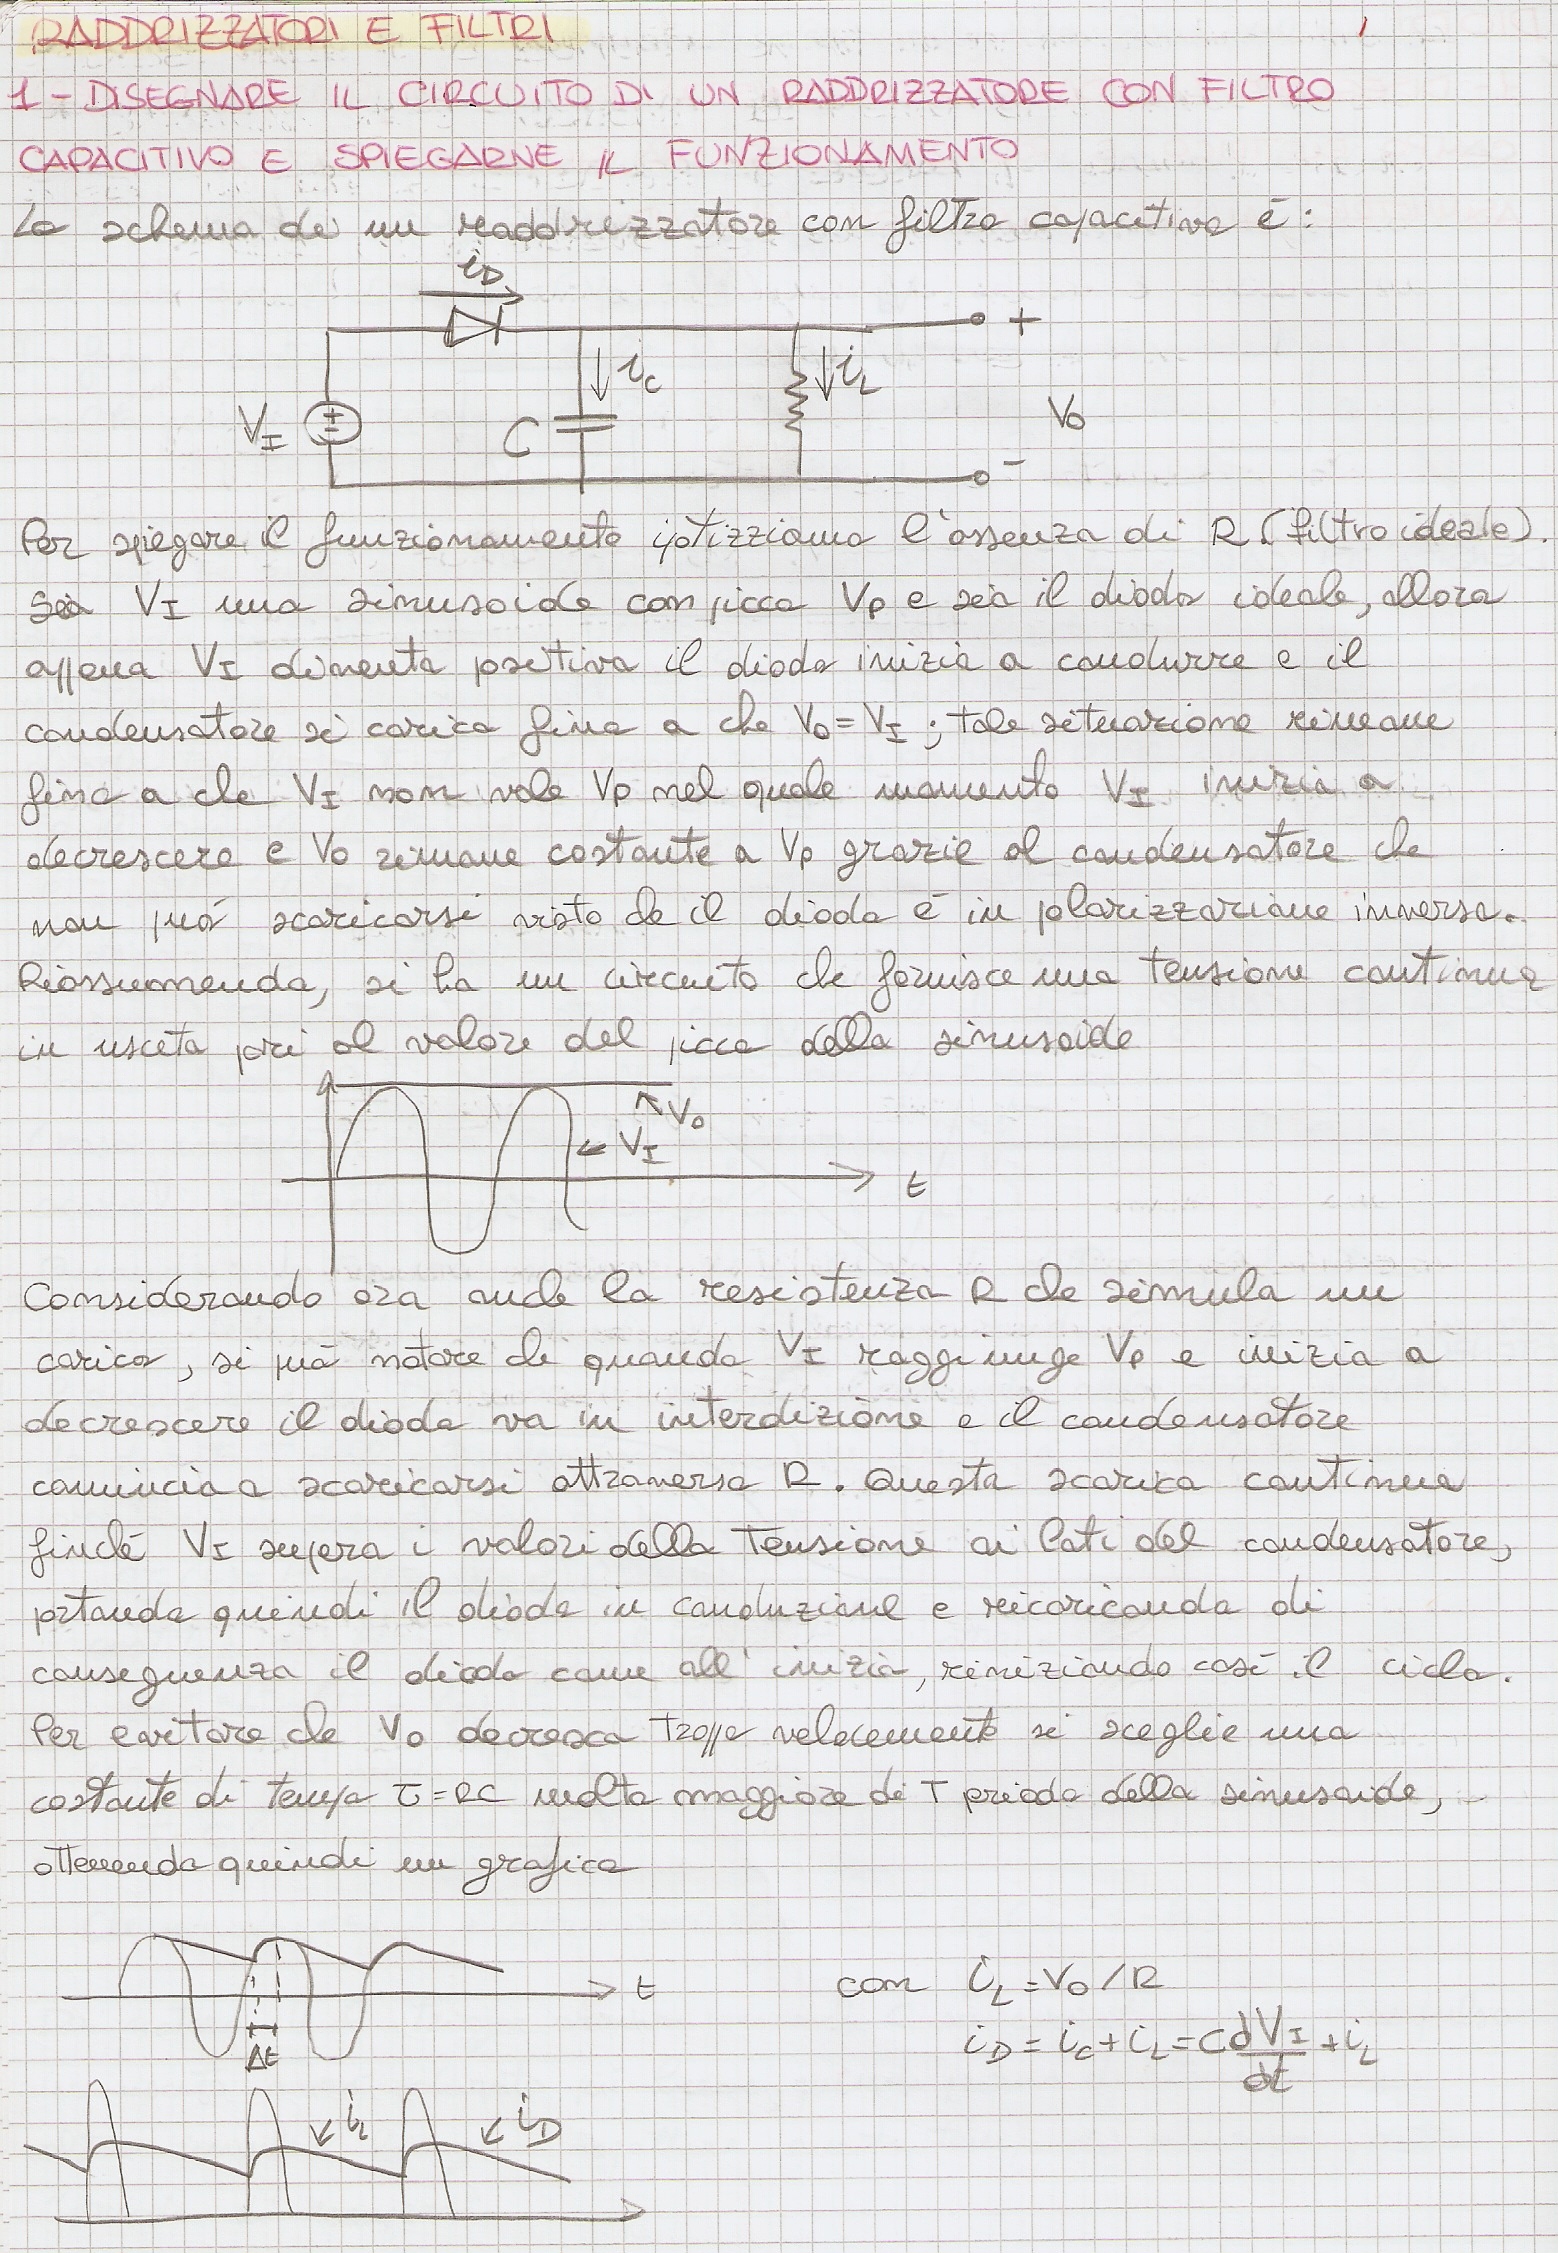 RADDRIZZATORI E FILTRI
1
1 - DISEGNARE IL CIRCUITO DI UN RADDRIZZATORE CON FILTRO
CAPACITIVO E SPIEGARNE IL FUNZIONAMENTO
Lo schema di un raddrizzatore con filtro capacitivo è:
iD
+
iC
iL
VI
C
VO
-
Per spiegare il funzionamento ipotizziamo l'assenza di R (filtro ideale).
Sia VI una sinusoide con picco VP e sia il diodo ideale, allora
appena VI diventa positiva il diodo inizia a condurre e il
condensatore si carica fino a che VO = VI ; tale situazione rimane
fino a che VI non vale VP nel quale momento VI inizia a
decrescere e VO rimane costante a VP grazie al condensatore che
non può scaricarsi visto che il diodo è in polarizzazione inversa.
Riassumendo, si ha un circuito che fornisce una tensione continua
in uscita pari al valore del picco della sinusoide
VO
VI
t
Considerando ora anche la resistenza R che simula un
carico, si può notare che quando VI raggiunge VP e inizia a
decrescere il diodo va in interdizione e il condensatore
comincia a scaricarsi attraverso R. Questa scarica continua
finché VI supera i valori della tensione ai lati del condensatore,
portando quindi il diodo in conduzione e ricaricando di
conseguenza il diodo come all'inizio, reiniziando così il ciclo.
Per evitare che VO decresca troppo velocemente si sceglie una
costante di tempo τ = RC molto maggiore di T periodo della sinusoide,
ottenendo quindi un grafico
t
Δt
con iL = VO / R
iD = iC + iL = C dVI/dt + iL
iL
iD